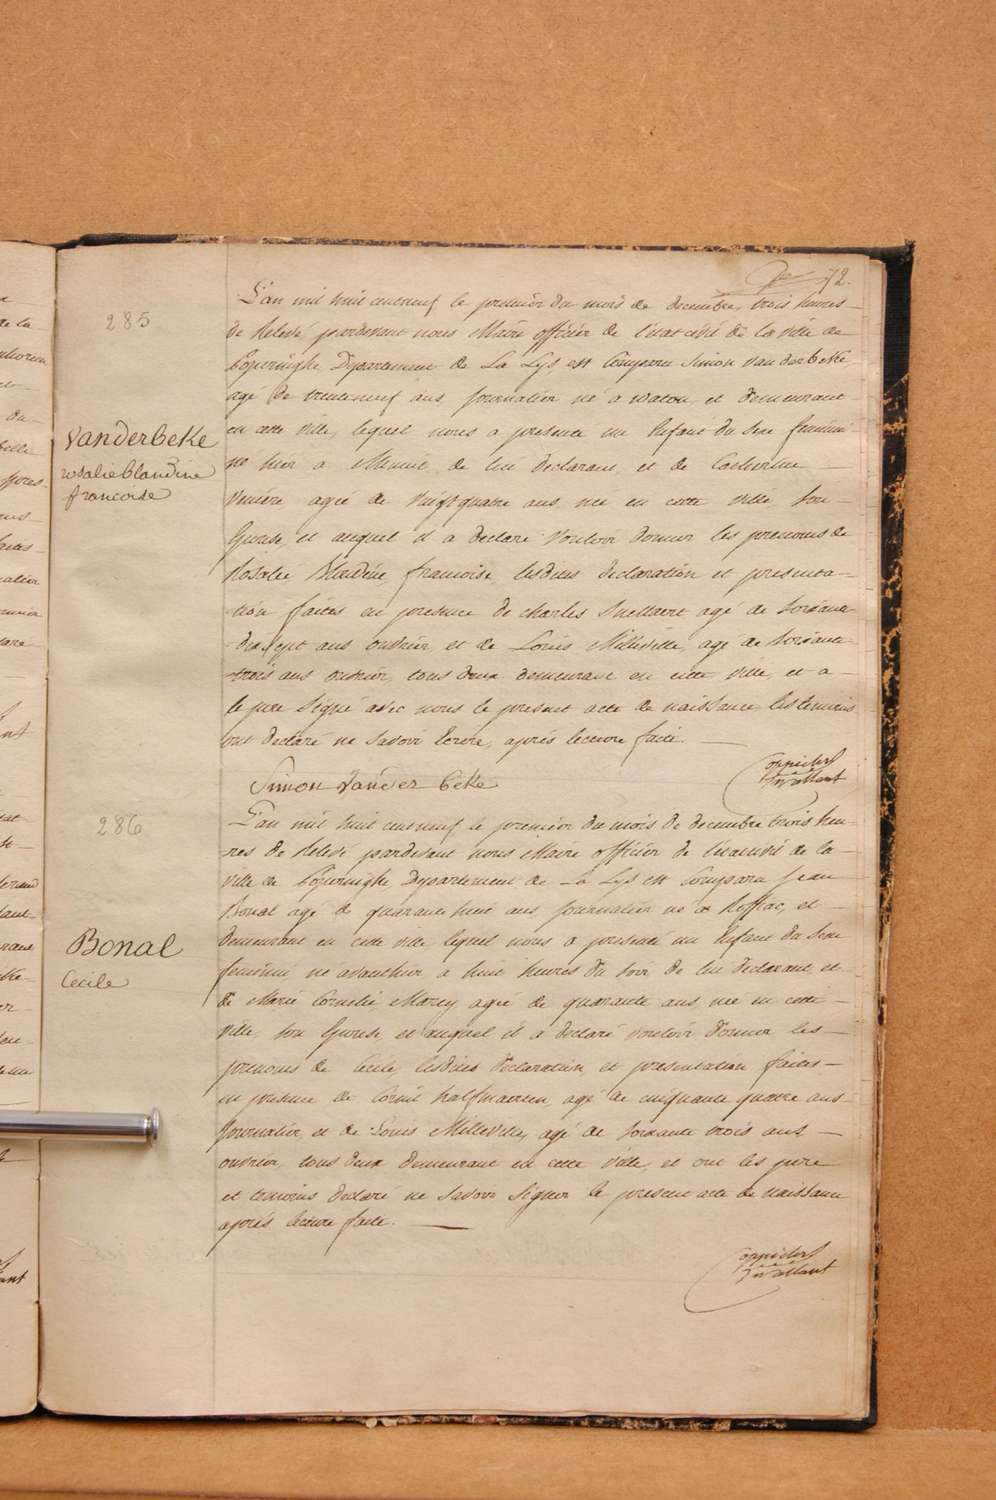 72.
285
L'an mil huit cent neuf le premier du mois de decembre, trois heures
de Relevé pardevant nous Maire officier de l'état civil de la ville de
Poperinghe Département de La Lys est Comparu Simon Vanderbeke,
agé de trente neuf ans journalier né a watou et demeurant
en cette ville, lequel nous a presenté un Enfant du sexe feminin
né hier a Minuit de lui declarant et de Catherine
agée de vingt quatre ans née en cette ville son
Epouse, et auquel il a declaré vouloir donner les prenoms de
Rosalie Blandine francoise, lesdites declaration et presenta-
tion faites en presence de charles Snellaert agé de soixante
dix sept ans ouvrier et de Louis Milleville, agé de soixante
trois ans ouvrier, tous deux demeurant en cette ville, et a
le pere signé avec nous le present acte de naissance les temoins
ont declaré ne savoir Ecrire, après lecture faite.
Vanderbeke
rosalie blandine
francoise
Simon vander beke
286
L'an mil huit cent neuf le premier du mois de decembre trois heu-
res de Relevé pardevant nous Maire officier de l'état civil de la
ville de Poperinghe Département de La Lys est Comparu Jean
Bonal agé de quarante huit ans, journalier né a et
demeurant en cette ville lequel nous a presenté un Enfant du sexe
feminin né avanthier a huit heures du soir de lui declarant et
de Marie Cornelie Marey agée de quarante ans née en cette
ville, son Epouse, et auquel il a declaré vouloir donner les
prenoms de Cecile, lesdites declaration et presentation faites
en presence de Cornil halfmaerten, agé de cinquante quatre ans
journalier, et de Louis Milleville, agé de soixante trois ans
ouvrier, tous deux demeurant en cette ville, et ont les pere
et temoins declaré ne savoir signer le present acte de naissance
après lecture faite.
Bonal
Cecile